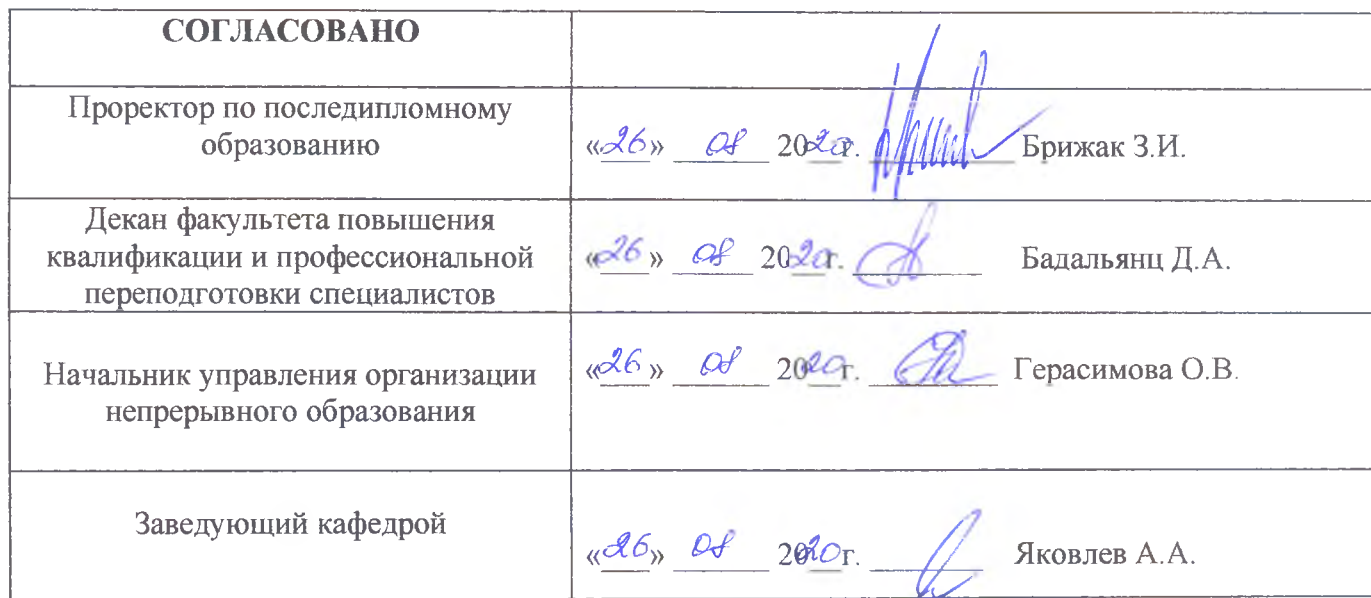 СОГЛАСОВАНО
Проректор по последипломному
образованию
«26» 08 2020г. Брижак З.И.
Декан факультета повышения
квалификации и профессиональной
переподготовки специалистов
«26» 08 2020г. Бадальянц Д.А.
Начальник управления организации
непрерывного образования
«26» 08 2020г. Герасимова О.В.
Заведующий кафедрой
«26» 08 2020г. Яковлев А.А.